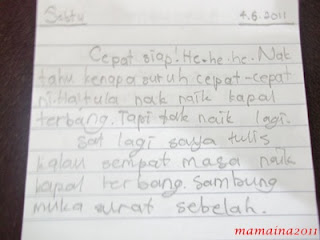 Sabtu 4.6.2011
Cepat siap! He-he-he. Nak
tahu kenapa suruh cepat-cepat
ni. Haitula nak naik kapal
terbang. Tapi tak naik lagi.
Saat lagi saya tulis
kalau sempat masa naik
kapal terbang. Sambung
muka surat sebelah.
mamaina2011